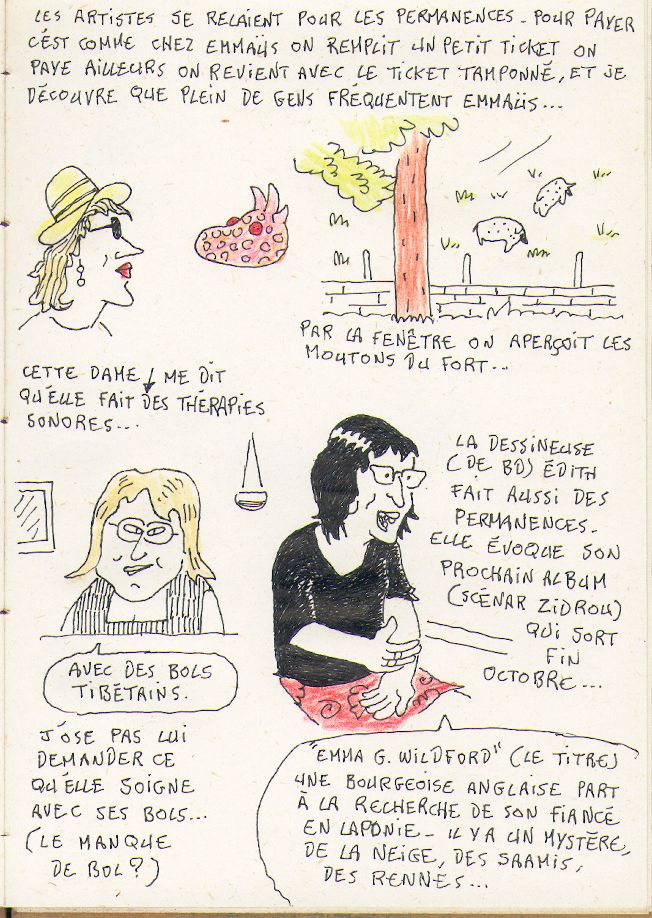 LES ARTISTES SE RELAIENT POUR LES PERMANENCES - POUR PAYER
C'EST COMME CHEZ EMMAÜS ON REMPLIT UN PETIT TICKET ON
PAYE AILLEURS ON REVIENT AVEC LE TICKET TAMPONNÉ, ET JE
DÉCOUVRE QUE PLEIN DE GENS FRÉQUENTENT EMMAÜS...
PAR LA FENÊTRE ON APERÇOIT LES
MOUTONS DU FORT...
CETTE DAME ME DIT
QU'ELLE FAIT DES THÉRAPIES
SONORES...
AVEC DES BOLS
TIBÉTAINS.
J'OSE PAS LUI
DEMANDER CE
QU'ELLE SOIGNE
AVEC SES BOLS...
(LE MANQUE
DE BOL?)
LA DESSINEUSE
(DE BD) ÉDITH
FAIT AUSSI DES
PERMANENCES-
ELLE ÉVOQUE SON
PROCHAIN ALBUM
(SCÉNAR ZIDROU)
QUI SORT
FIN
OCTOBRE...
"EMMA G. WILDFORD" (LE TITRE)
UNE BOURGEOISE ANGLAISE PART
À LA RECHERCHE DE SON FIANCÉ
EN LAPONIE - IL Y A UN MYSTÈRE,
DE LA NEIGE, DES SAAMIS,
DES RENNES...